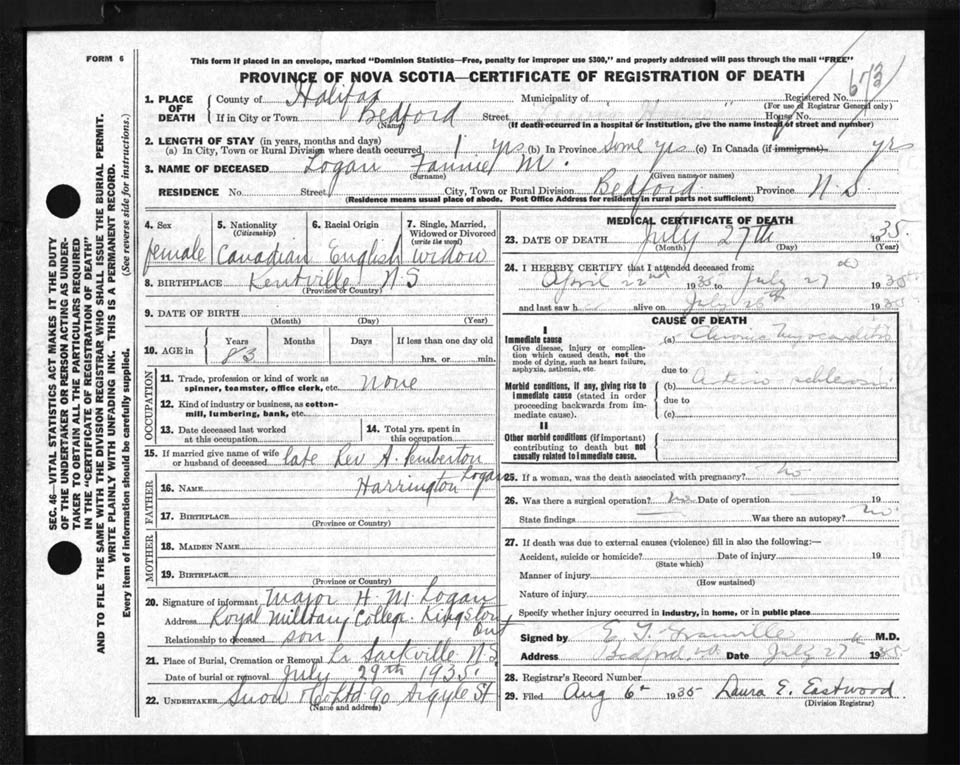 FORM 6
This form if placed in an envelope, marked "Dominion Statistics—Free, penalty for improper use $300," and properly addressed will pass through the mail "FREE"
PROVINCE OF NOVA SCOTIA—CERTIFICATE OF REGISTRATION OF DEATH
673
1. PLACE OF DEATH
County of Halifax Municipality of Registered No.
(For use of Registrar General only)
If in City or Town Bedford Street House No.
(Name) (If death occurred in a hospital or institution, give the name instead of street and number)
2. LENGTH OF STAY (in years, months and days)
(a) In City, Town or Rural Division where death occurred 1 yrs (b) In Province Some yrs (c) In Canada (if immigrant) yrs
3. NAME OF DECEASED Logan Fannie M.
(Surname) (Given name or names)
RESIDENCE No. Street City, Town or Rural Division Bedford Province N.S.
(Residence means usual place of abode. Post Office Address for residents in rural parts not sufficient)
4. Sex female
5. Nationality (Citizenship) Canadian
6. Racial Origin English
7. Single, Married, Widowed or Divorced (write the word) widow
8. BIRTHPLACE Kentville N S
(Province or Country)
9. DATE OF BIRTH
(Month) (Day) (Year)
10. AGE in Years 83 Months Days If less than one day old
hrs. or min.
OCCUPATION
11. Trade, profession or kind of work as spinner, teamster, office clerk, etc. none
12. Kind of industry or business, as cotton-mill, lumbering, bank, etc.
13. Date deceased last worked at this occupation
14. Total yrs. spent in this occupation
15. If married give name of wife or husband of deceased late Rev A. Pemberton Logan
FATHER
16. NAME Harrington
17. BIRTHPLACE
(Province or Country)
MOTHER
18. MAIDEN NAME
19. BIRTHPLACE
(Province or Country)
20. Signature of informant Major H M Logan
Address Royal Military College. Kingston Ont
Relationship to deceased son
21. Place of Burial, Cremation or Removal Lr Sackville N.S.
Date of burial or removal July 29th 1935.
22. UNDERTAKER Snow & Co Ltd 90 Argyle St
(Name and address)
MEDICAL CERTIFICATE OF DEATH
23. DATE OF DEATH July 27th 1935
(Month) (Day) (Year)
24. I HEREBY CERTIFY that I attended deceased from:
April 22nd 1935 to July 27th 1935
and last saw h alive on July 26th 1935
CAUSE OF DEATH
I
Immediate cause
Give disease, injury or complication which caused death, not the mode of dying, such as heart failure, asphyxia, asthenia, etc.
(a) Chronic Myocarditis
due to
Morbid conditions, if any, giving rise to immediate cause (stated in order proceeding backwards from immediate cause).
(b) Arterio schlerosis
due to
(c)
II
Other morbid conditions (if important) contributing to death but not causally related to immediate cause.
25. If a woman, was the death associated with pregnancy? no
26. Was there a surgical operation? no Date of operation 19
State findings Was there an autopsy? no
27. If death was due to external causes (violence) fill in also the following:—
Accident, suicide or homicide? Date of injury 19
(State which)
Manner of injury
(How sustained)
Nature of injury
Specify whether injury occurred in industry, in home, or in public place
Signed by E. T. Granville M.D.
Address Bedford, N.S. Date July 27th 1935
28. Registrar's Record Number
29. Filed Aug 6th 1935 Laura E. Eastwood
(Division Registrar)
SEC. 46—VITAL STATISTICS ACT MAKES IT THE DUTY
OF THE UNDERTAKER OR PERSON ACTING AS UNDER-
TAKER TO OBTAIN ALL THE PARTICULARS REQUIRED
IN THE "CERTIFICATE OF REGISTRATION OF DEATH"
AND TO FILE THE SAME WITH THE DIVISION REGISTRAR WHO SHALL ISSUE THE BURIAL PERMIT.
WRITE PLAINLY WITH UNFADING INK. THIS IS A PERMANENT RECORD.
Every item of information should be carefully supplied. (See reverse side for instructions.)